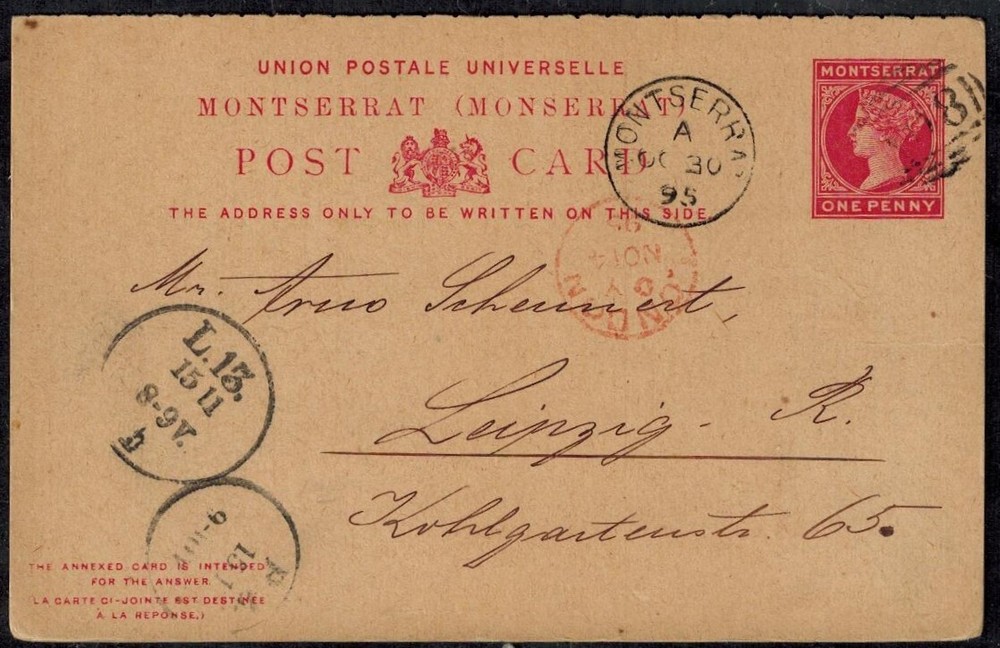 UNION POSTALE UNIVERSELLE
MONTSERRAT (MONSERRAT)
POST CARD
THE ADDRESS ONLY TO BE WRITTEN ON THIS SIDE
MONTSERRAT
ONE PENNY
MONTSERRAT
A
OC 30
95
LONDON
NO 14
95
Mr. Arno Scheunert,
Leipzig - R.
Kohlgartenstr. 65.
L.13.
15 11
8-9V.
THE ANNEXED CARD IS INTENDED
FOR THE ANSWER.
(LA CARTE CI-JOINTE EST DESTINÉE
À LA RÉPONSE.)